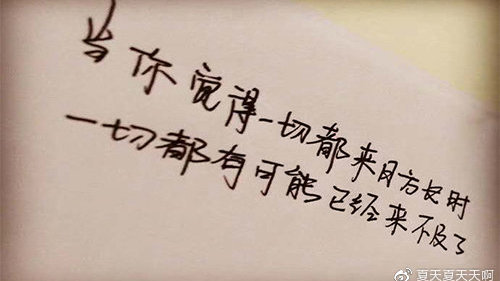 当你觉得一切都来日方长时
一切都有可能已经来不及了
夏天夏天天啊